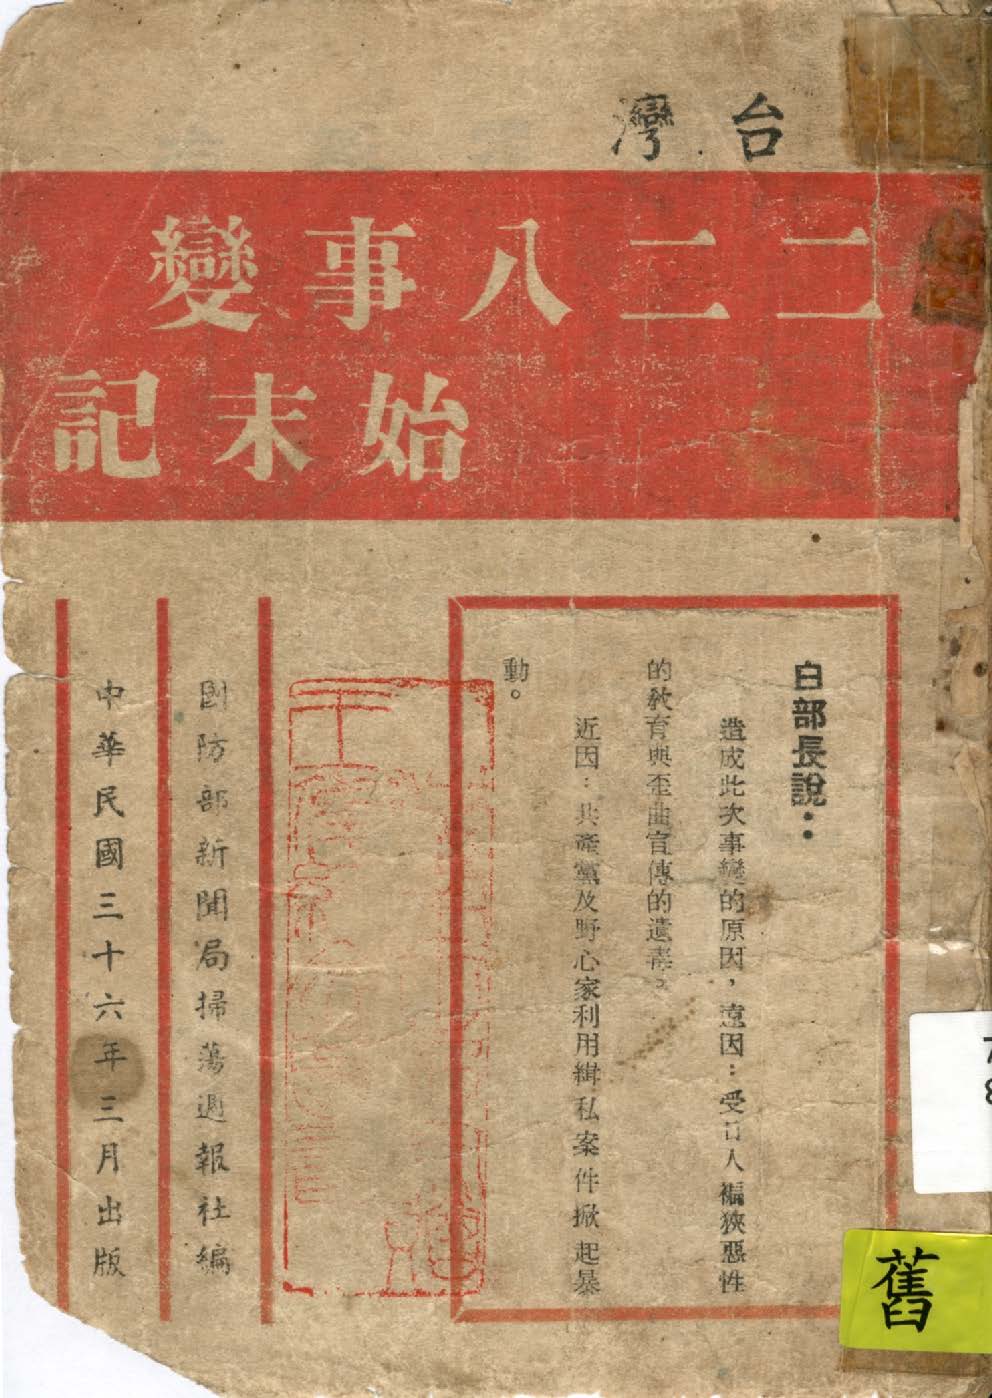 台灣
二二八事變
始末記
白部長說：
造成此次事變的原因，遠因：受日人褊狹惡性
的教育與歪曲宣傳的遺毒。
近因：共產黨及野心家利用緝私案件掀起暴
動。
國防部新聞局掃蕩週報社編
中華民國三十六年三月出版
舊